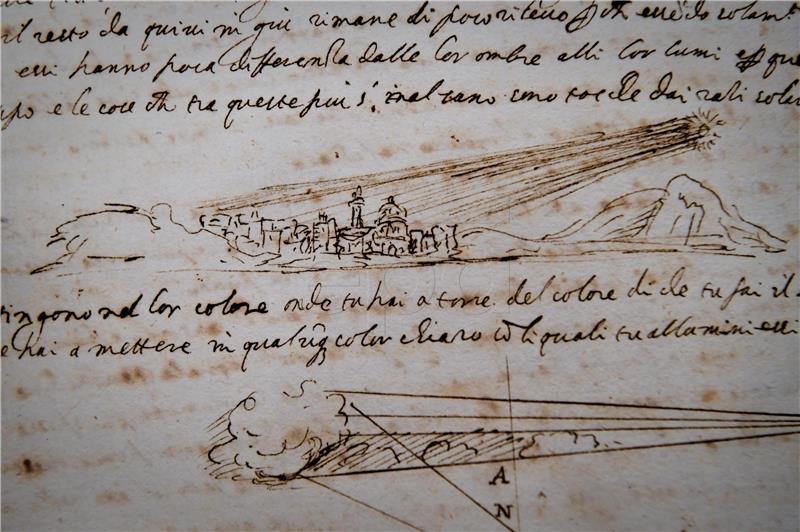 il resto da quivi in giù rimane di poco rilievo
essi hanno poca differentia dalle lor ombre alli lor lumi
e le cose tra queste più s'inalzano sono tocche dai rati
tingono nel lor colore onde tu hai a torre del colore di che tu fai il
hai a mettere in qualunq color chiaro quali tu allumini essi
A
N